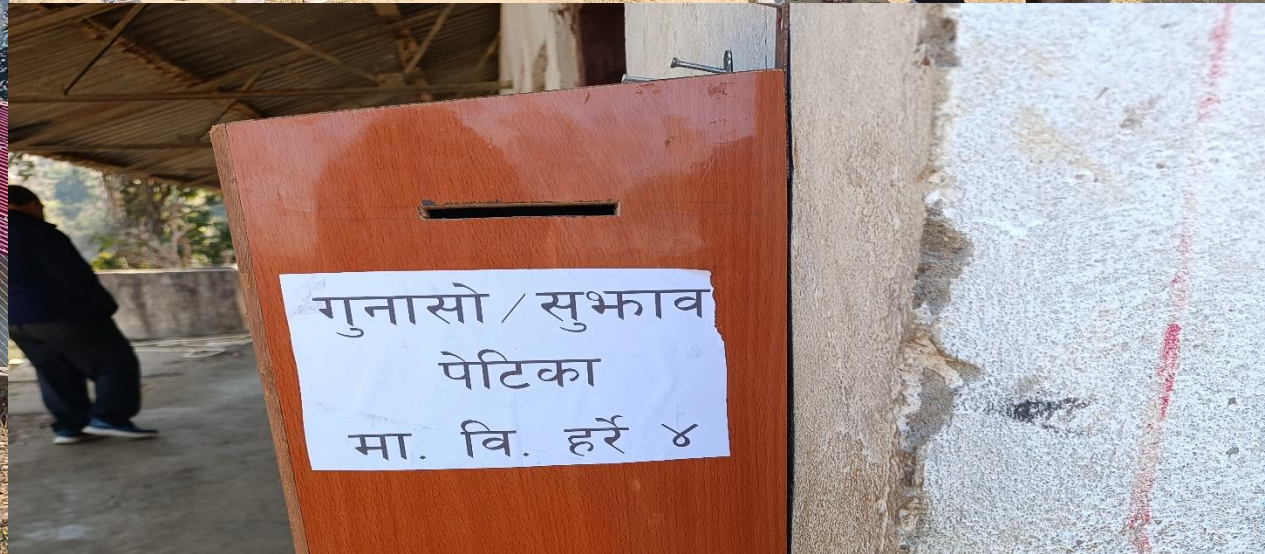 गुनासो / सुझाव
पेटिका
मा. वि. हर्रे ४